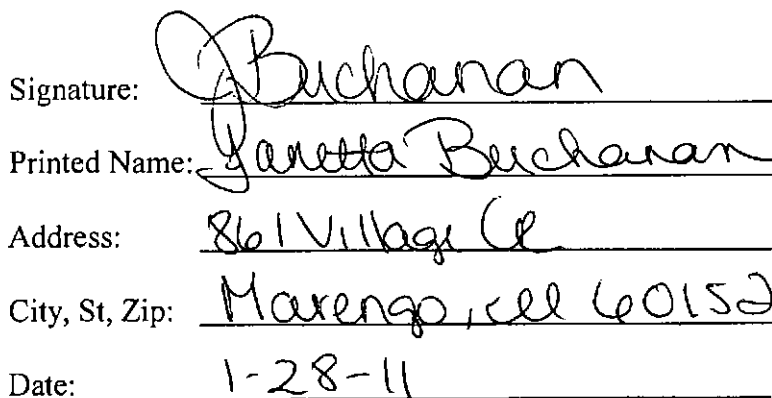 Signature: JBuchanan
Printed Name: Janetta Buchanan
Address: 861 Village
City, St, Zip: Marengo, Ill 60152
Date: 1-28-11